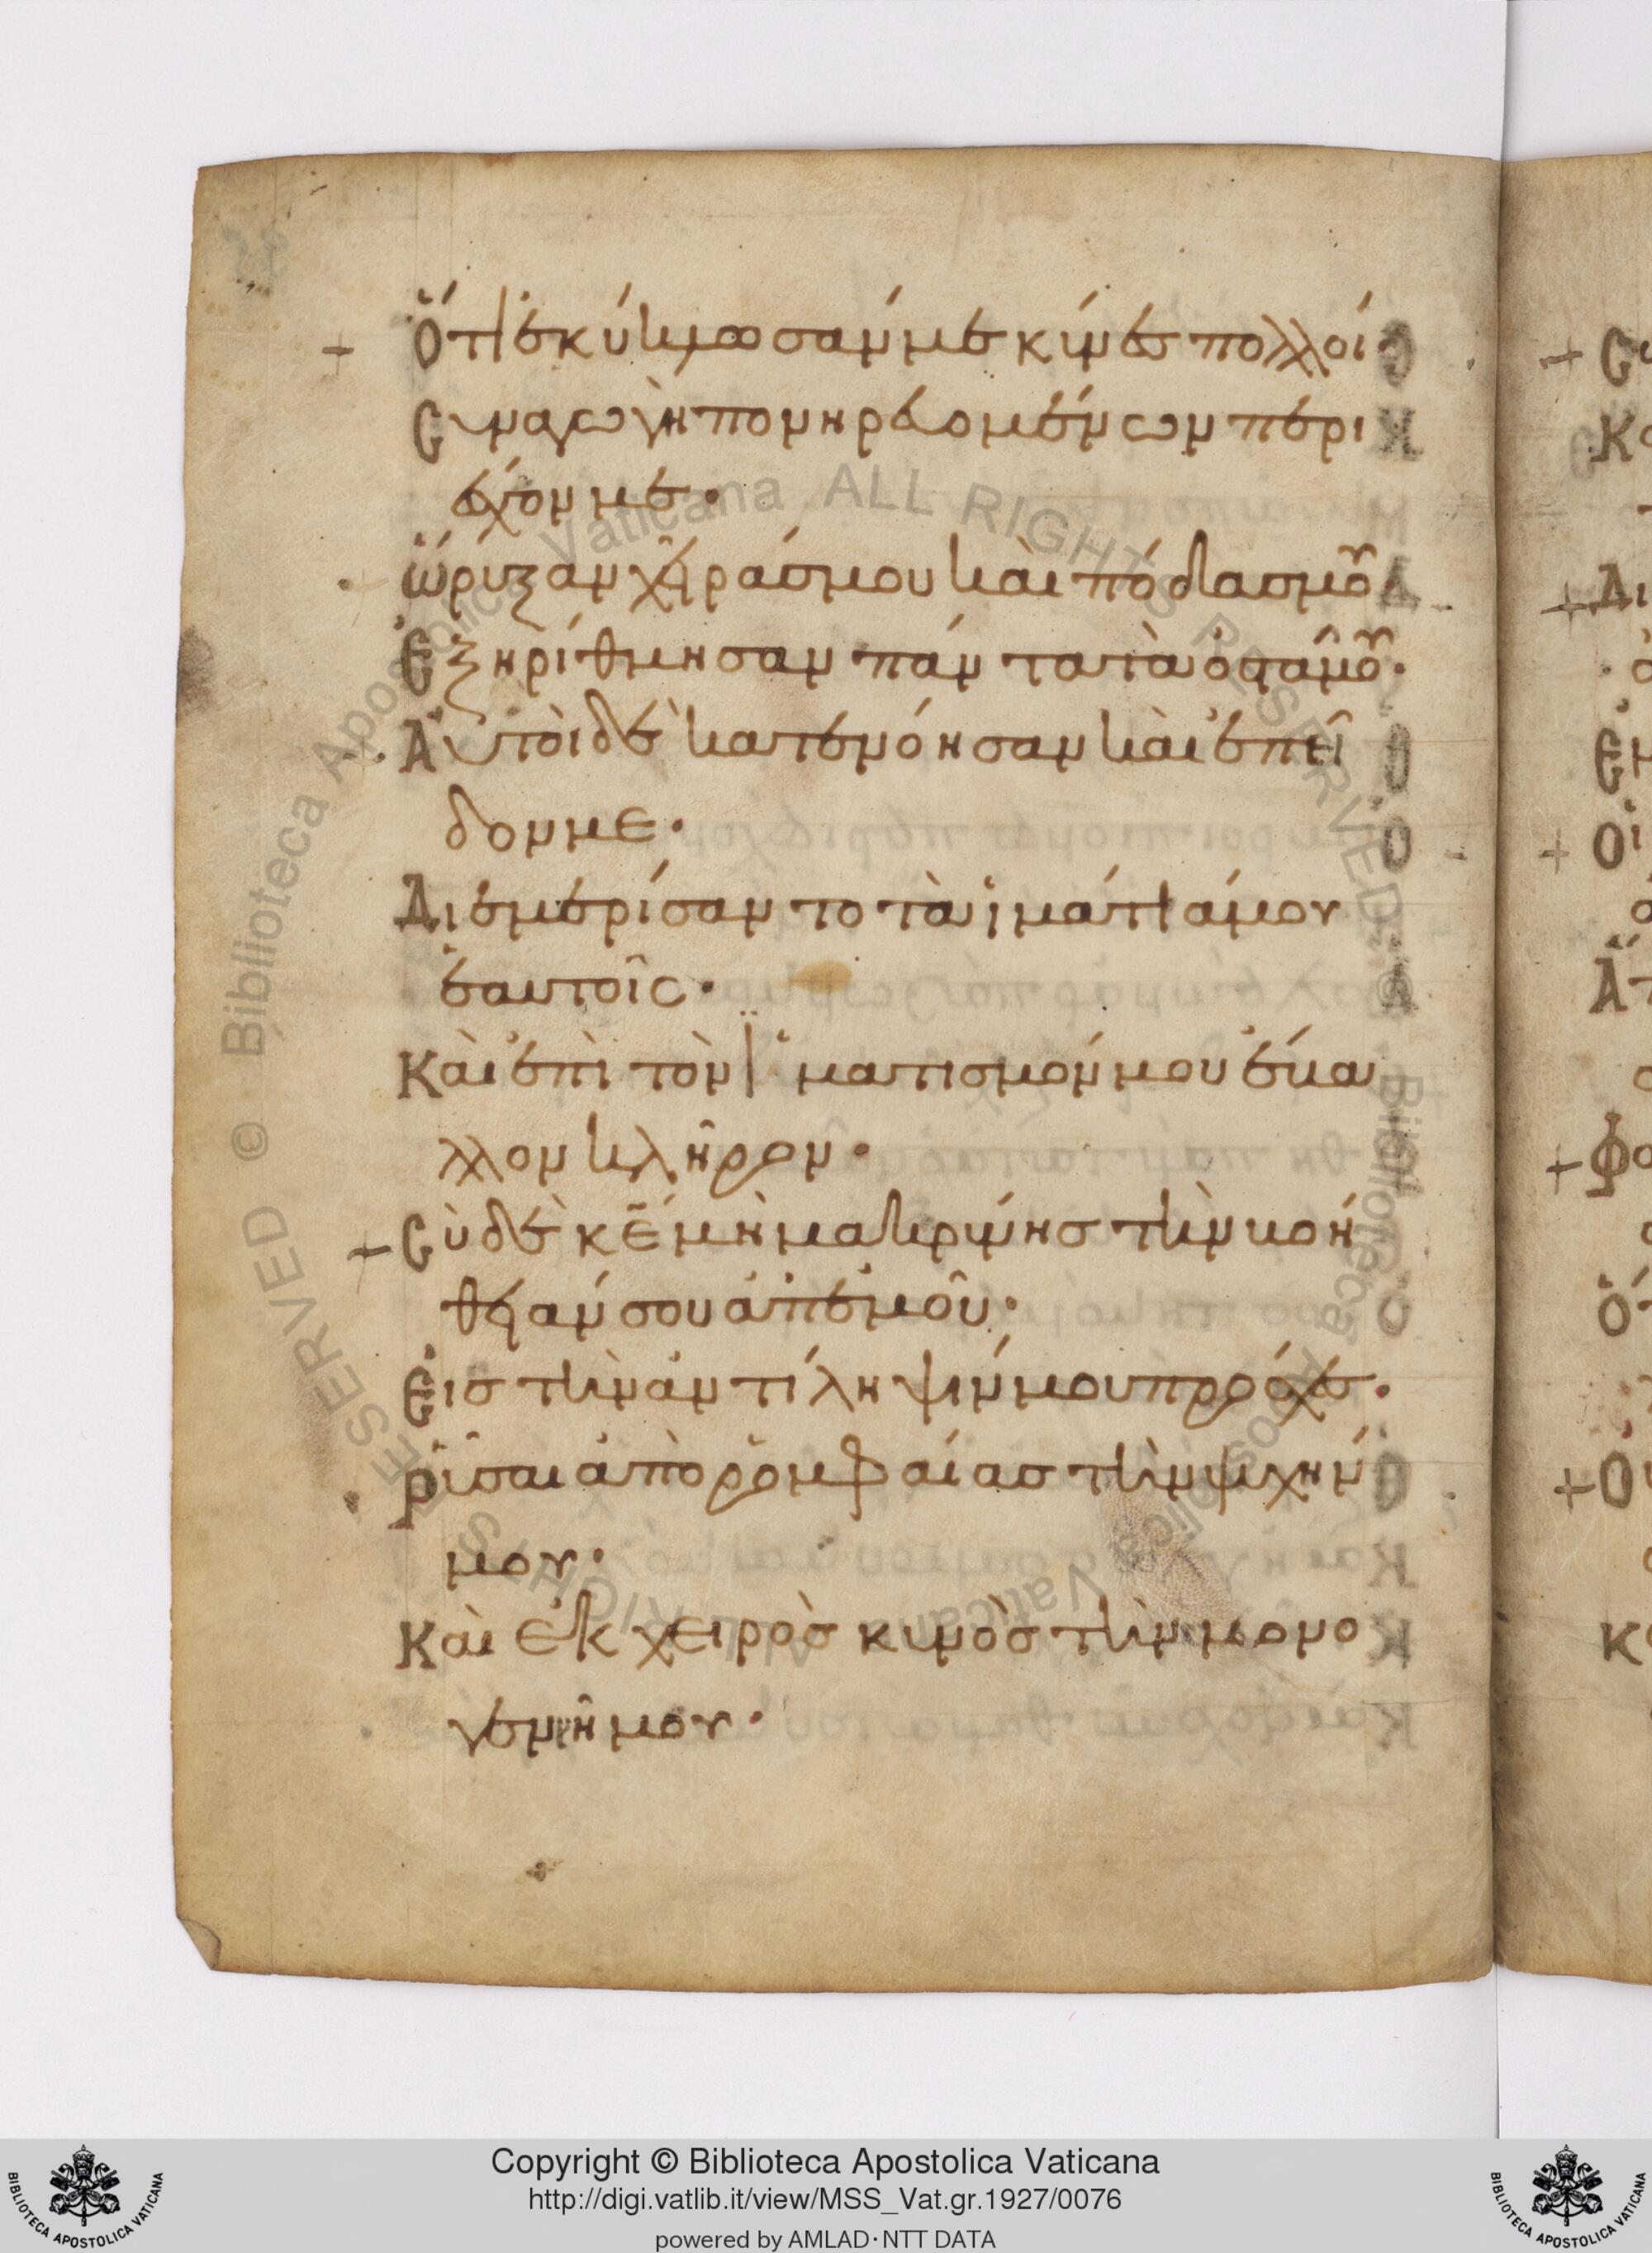 Ὅτι ἐκύκλωσάν με κύνες πολλοί
Συναγωγὴ πονηρευομένων περι
έσχον με·
ὤρυξαν χεῖράς μου καὶ πόδας μου
Ἐξηρίθμησαν πάντα τὰ ὀστᾶ μου·
Αὐτοὶ δὲ κατενόησαν καὶ ἐπεῖ
δον με·
Διεμερίσαντο τὰ ἱμάτιά μου
ἑαυτοῖς·
Καὶ ἐπὶ τὸν ἱματισμόν μου ἔβα
λλον κλῆρον·
Σὺ δὲ κ̄ε̄ μὴ μακρύνης τὴν βοή
θειάν σου ἀπ' ἐμοῦ·
Εἰς τὴν ἀντίληψίν μου πρόσχες·
ῥῦσαι ἀπὸ ῥομφαίας τὴν ψυχήν
μου·
Καὶ ἐκ χειρὸς κυνὸς τὴν μονο
γενῆ μου·
Copyright © Biblioteca Apostolica Vaticana
http://digi.vatlib.it/view/MSS_Vat.gr.1927/0076
powered by AMLAD·NTT DATA
BIBLIOTECA APOSTOLICA VATICANA
BIBLIOTECA APOSTOLICA VATICANA